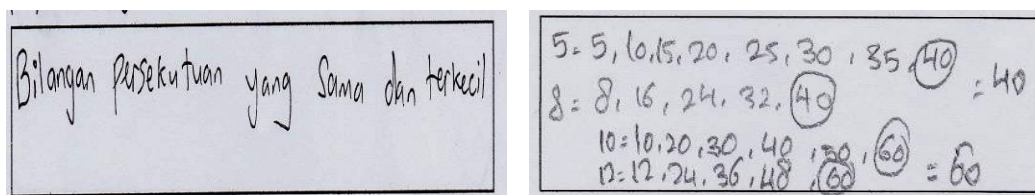 Bilangan persekutuan yang sama dan terkecil
5 = 5, 10, 15, 20, 25, 30, 35, 40
= 40
8 = 8, 16, 24, 32, 40
10 = 10, 20, 30, 40, 50, 60
12 = 12, 24, 36, 48, 60 = 60